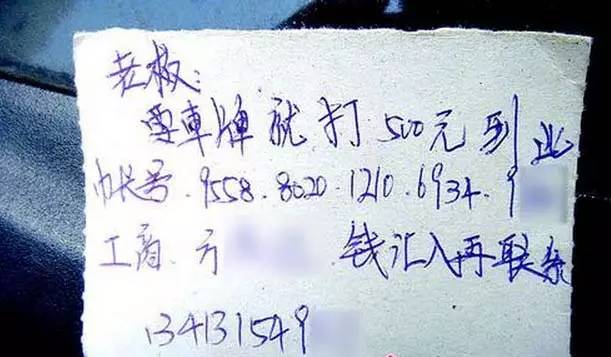 老板:
要車牌就打500元到此
帐号.9558.8020.1210.6934.9
工商.亓
钱汇入再联系
134131549